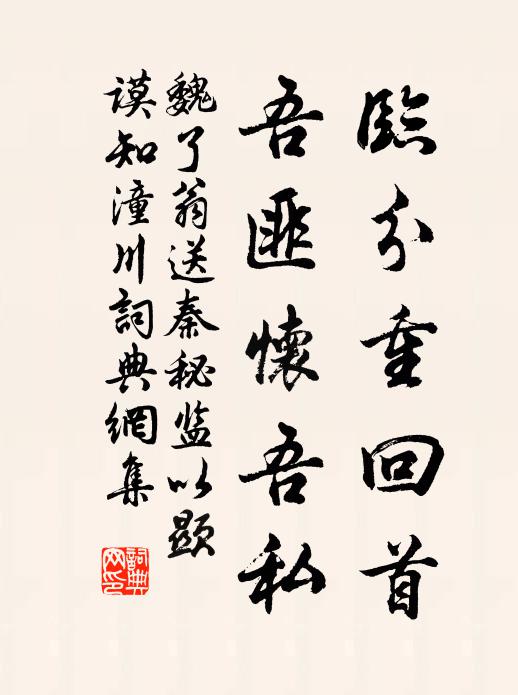 臨分重回首
吾匪懷吾私
魏了翁送秦秘监以顯
謨知潼川詞典網集
詞典
网印